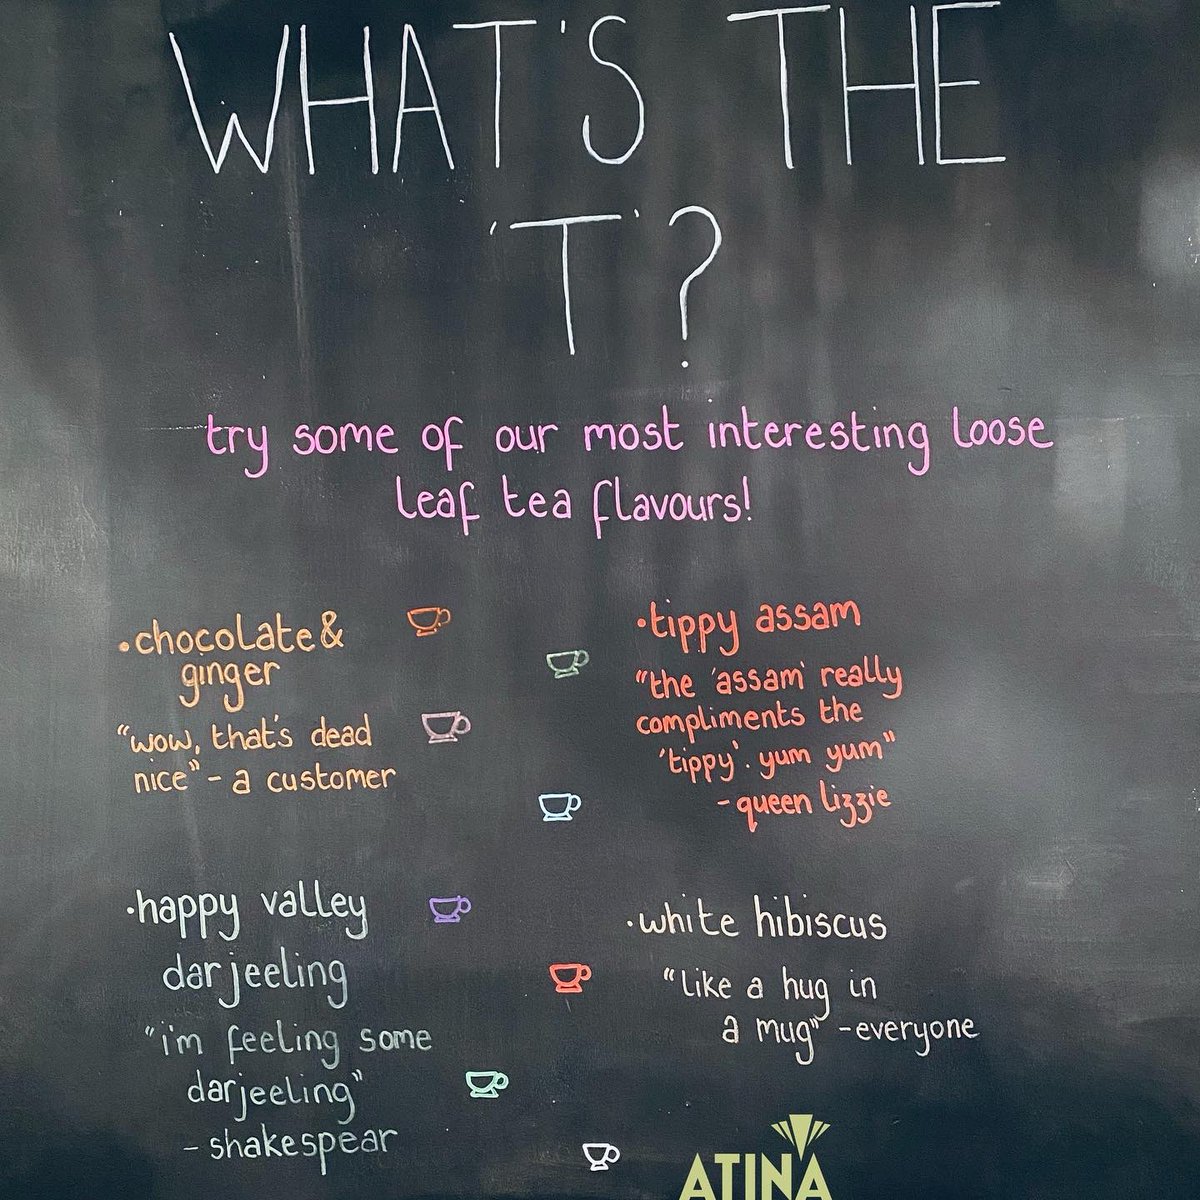 WHAT'S THE
'T'?
try some of our most interesting loose
leaf tea flavours!
•chocolate &
ginger
"wow, that's dead
nice" - a customer
•tippy assam
"the 'assam' really
compliments the
'tippy'. yum yum"
- queen lizzie
•happy valley
darjeeling
"i'm feeling some
darjeeling"
- shakespear
•white hibiscus
"like a hug in
a mug" - everyone
ATINA